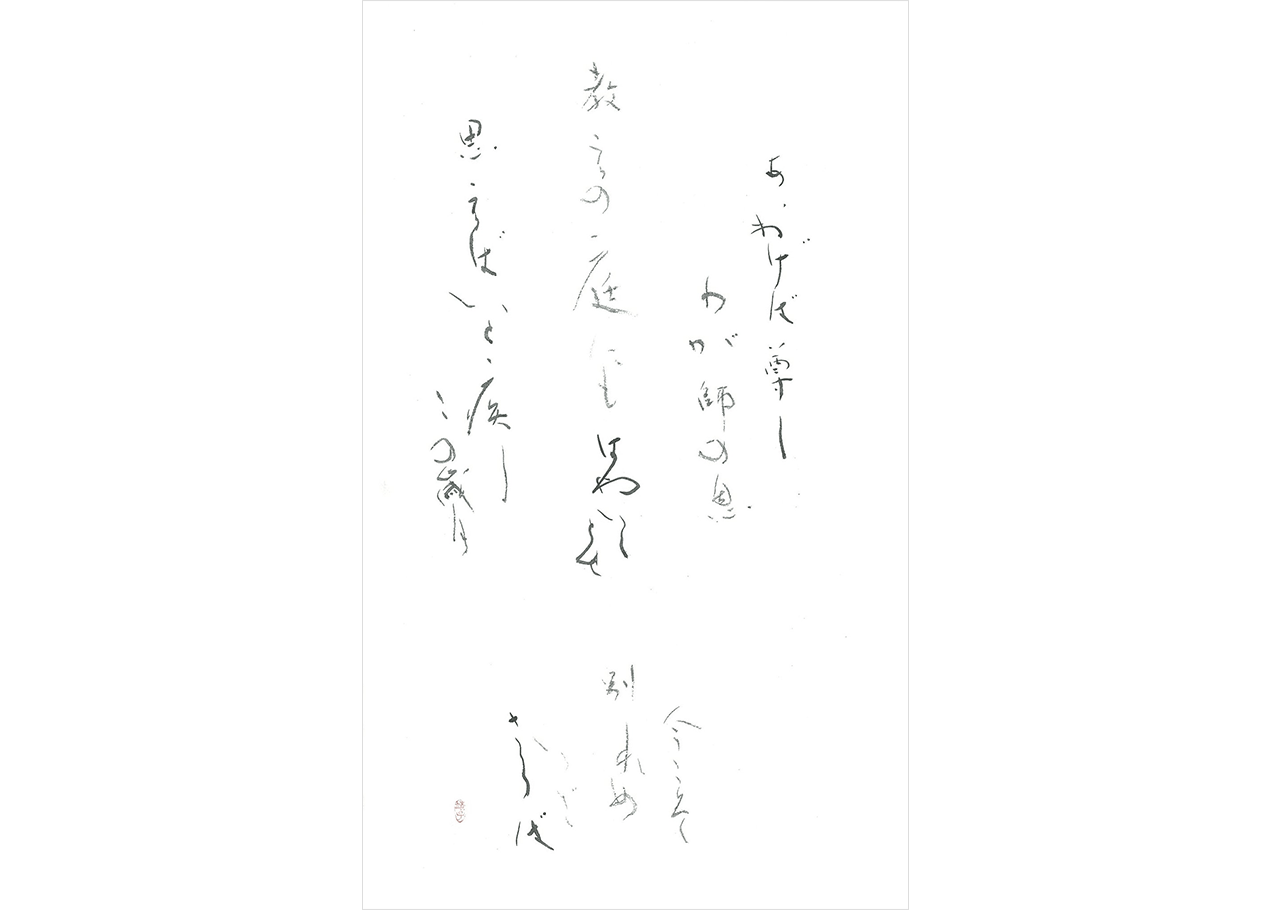 あおげば尊し
わが師の恩
教えの庭にも
はやいくとせ
思えばいと疾し
この歳月
今こそ
別れめ
いざ
さらば